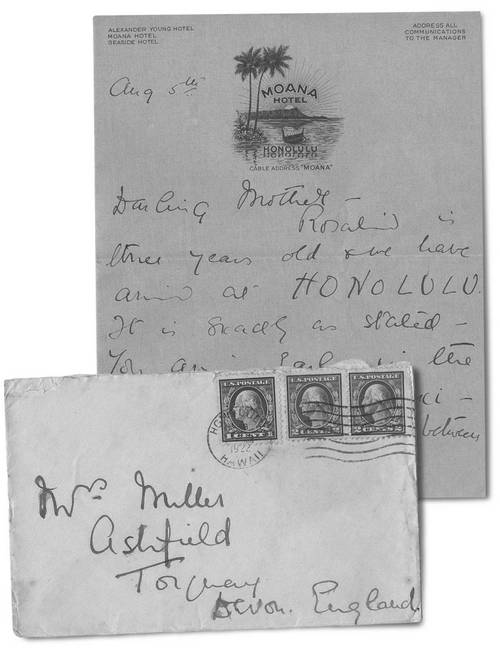 ALEXANDER YOUNG HOTEL
MOANA HOTEL
SEASIDE HOTEL
ADDRESS ALL
COMMUNICATIONS
TO THE MANAGER
Aug 5th
MOANA
HOTEL
HONOLULU
CABLE ADDRESS "MOANA"
Darling Mother -
Rosalind is
three years old & we have
arrived at HONOLULU.
It is exactly as stated -
You arrive early in the
between
U.S. POSTAGE
1 CENT 1
U.S. POSTAGE
2 CENTS 2
U.S. POSTAGE
2 CENTS 2
1922
HAWAII
Mrs Miller
Ashfield
Torquay
Devon. England.